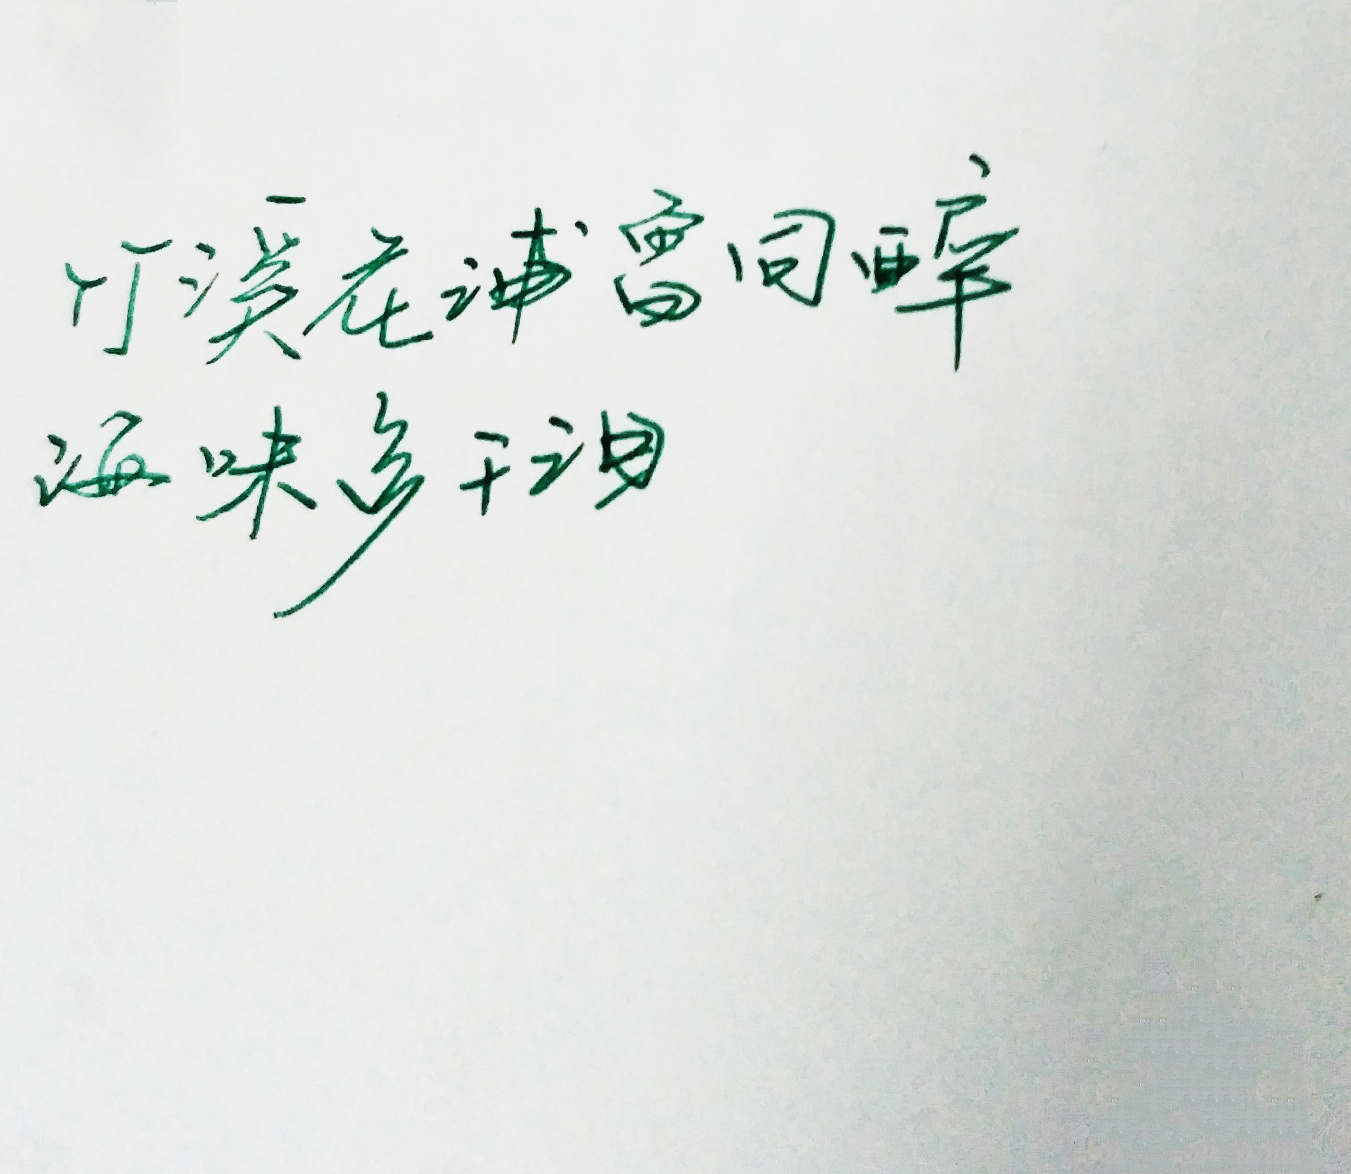 竹溪花浦曾同醉
酒味多于泪